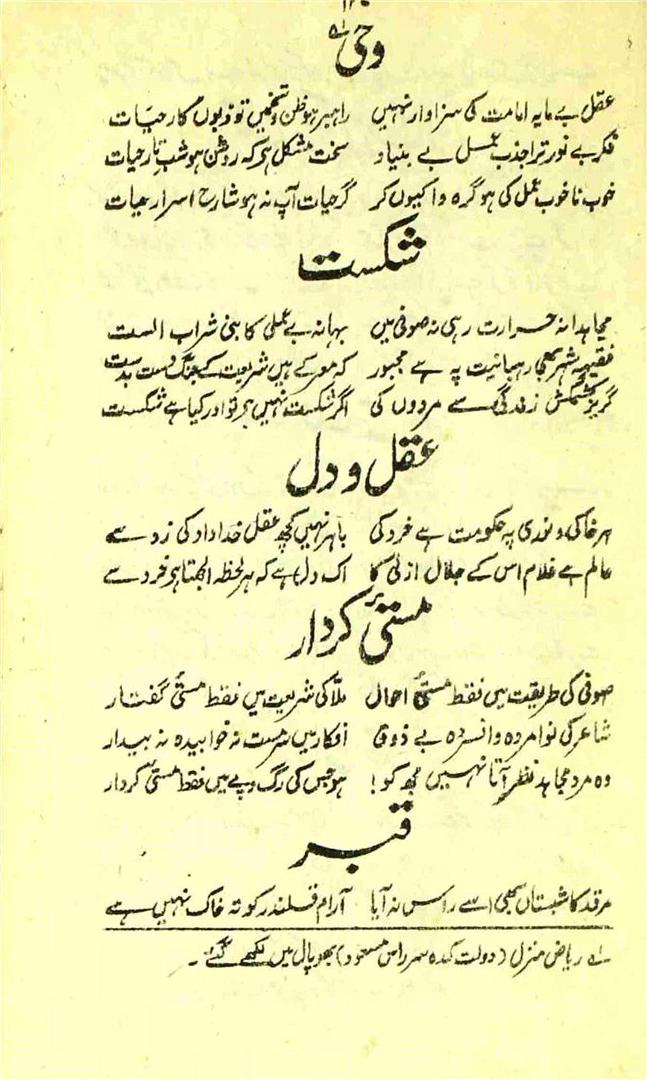 وحی ؂۱
عقل بے مایہ امامت کی سزاوار نہیں راہبر ہو ظن و تخمیں تو زبوں کار حیات
فکر بے نور ترا جذب عمل بے بنیاد سخت مشکل ہے کہ روشن ہو شب تار حیات
خوب ناخوب عمل کی ہو گرہ وا کیوں کر گر حیات آپ نہ ہو شارح اسرار حیات
شکست
مجاہدانہ حرارت رہی نہ صوفی میں بہانہ بے عملی کا بنی شراب الست
فقیہہ شہر بھی رہبانیت پہ ہے مجبور کہ معرکے ہیں شریعت کے جنگ دست بدست
گریز کشمکش زندگی سے مردوں کی اگر شکست نہیں ہے تو اور کیا ہے شکست
عقل و دل
ہر خاکی و نوری پہ حکومت ہے خرد کی باہر نہیں کچھ عقل خداداد کی زد سے
عالم ہے غلام اس کے جلال ازلی کا اک دل ہے کہ ہر لحظہ الجھتا ہے خرد سے
مستیٔ کردار
صوفی کی طریقت میں فقط مستیٔ احوال ملا کی شریعت میں فقط مستیٔ گفتار
شاعر کی نوا مردہ و افسردہ بے ذوق افکار میں سرمست نہ خوابیدہ نہ بیدار
وہ مرد مجاہد نظر آتا نہیں مجھ کو! ہو جس کی رگ و پے میں فقط مستیٔ کردار
قبر
مرقد کا شبستاں بھی اسے راس نہ آیا آرام قلندر کو تہ خاک نہیں ہے
؂۱ ریاض منزل (دولت کدہ سر راس مسعود) بھوپال میں لکھے گئے۔